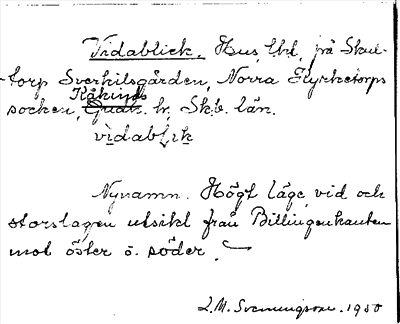 Vidablick. Hus, lht, på Skul-
torp Sverkilsgården, Norra Kyrketorps
Kåkinds
socken, Gudh. hr, Skb. län.
vìdabl̥ik
Nynamn. Högt läge, vid och
storslagen utsikt från Billingenkanten
mot öster o. söder.
L.M. Svenningsson. 1950